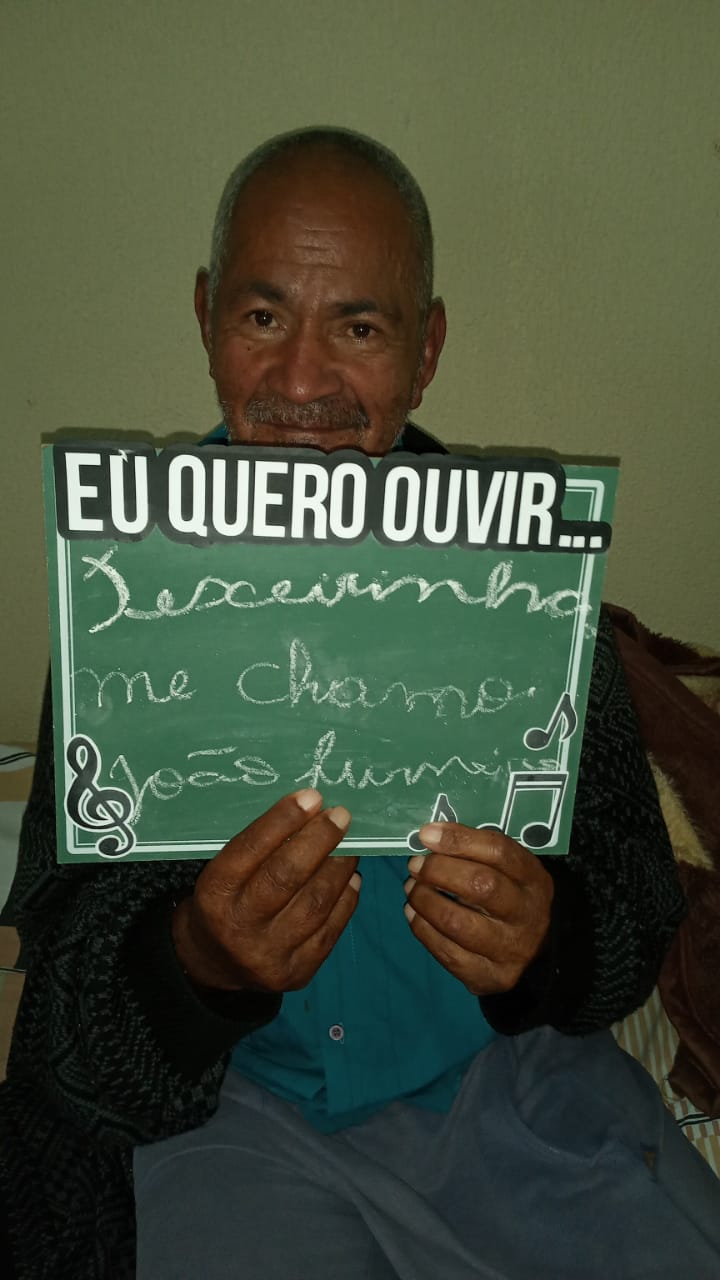 EU QUERO OUVIR...
Texeirinha
me chamo
João